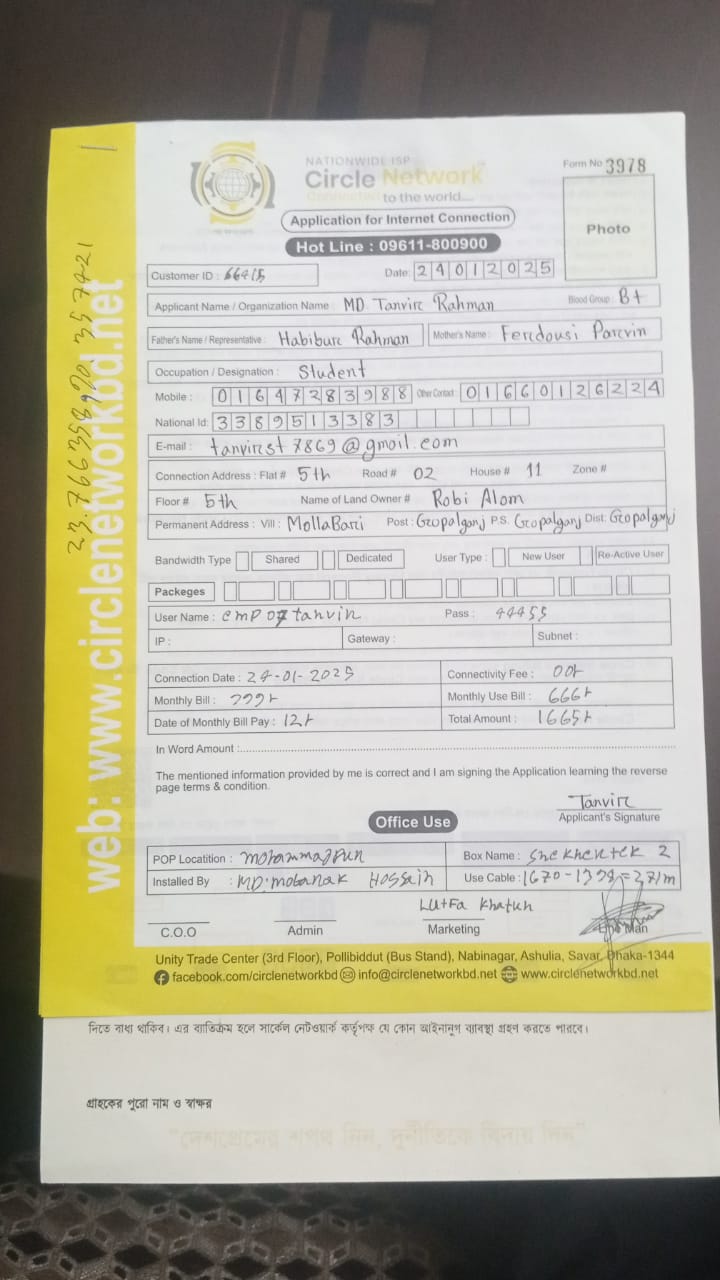 NATIONWIDE ISP
Circle Network
Connected to the world....
Form No 3978
Application for Internet Connection
Hot Line : 09611-800900
Photo
Customer ID :
Date: 24012025
Applicant Name / Organization Name MD. Tanvir Rahman Blood Group : B+
Father's Name / Representative : Habibur Rahman Mother's Name : Ferdousi Parvin
Occupation / Designation : Student
Mobile : 01647283988 Other Contact : 01660126224
National Id: 3389513383
E-mail : tanvirst7869@gmail.com
Connection Address : Flat # 5th Road # 02 House # 11 Zone #
Floor # 5th Name of Land Owner # Robi Alom
Permanent Address : Vill : MollaBari Post : Gopalganj P.S. Gopalganj Dist: Gopalganj
Bandwidth Type Shared Dedicated User Type : New User Re-Active User
Packeges
User Name : cmp07tanvir Pass : 44455
IP : Gateway : Subnet :
Connection Date : 24-01-2025 Connectivity Fee : 00/-
Monthly Bill : 999/- Monthly Use Bill : 666/-
Date of Monthly Bill Pay : 12/- Total Amount : 1665/-
In Word Amount :
The mentioned information provided by me is correct and I am signing the Application learning the reverse
page terms & condition.
Tanvir
Applicant's Signature
Office Use
POP Locatition : Box Name : Shekhertek 2
Installed By : MD. Mobarak Hossain Use Cable :
Lutfa Khatun
C.O.O Admin Marketing
Unity Trade Center (3rd Floor), Pollibiddut (Bus Stand), Nabinagar, Ashulia, Savar, Dhaka-1344
facebook.com/circlenetworkbd info@circlenetworkbd.net www.circlenetworkbd.net
web: www.circlenetworkbd.net
নিতে বাধ্য থাকিব। এর ব্যতিক্রম হলে সার্কেল নেটওয়ার্ক কর্তৃপক্ষ যে কোন আইনানুগ ব্যবস্থা গ্রহণ করতে পারবে।
গ্রাহকের পুরো নাম ও স্বাক্ষর
“দেশপ্রেমের শপথ নিন, দুর্নীতিকে বিদায় দিন”